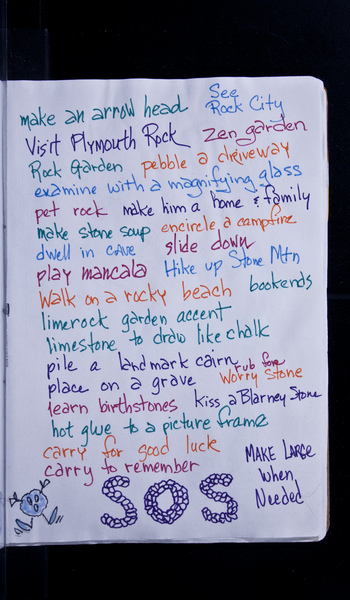 make an arrow head
See
Rock City
Visit Plymouth Rock
Zen garden
Rock Garden
pebble a driveway
examine with a magnifying glass
pet rock
make him a home & family
make stone soup
encircle a campfire
dwell in cave
slide down
play mancala
Hike up Stone Mtn
Walk on a rocky beach
bookends
limerock garden accent
limestone to draw like chalk
pile a landmark cairn
rub for a
Worry Stone
place on a grave
learn birthstones
Kiss a Blarney Stone
hot glue to a picture frame
carry for good luck
carry to remember
SOS
MAKE LARGE
When
Needed